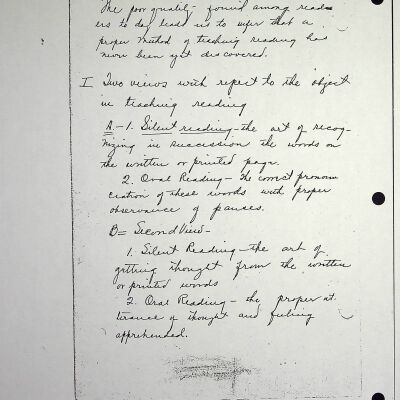 The poor quality - found among read-
ers to day lead us to infer that a
proper method of teaching reading has
never been yet discovered.
I Two views with repect to the object
in teaching reading
A.-1. Silent reading - the art of recog-
nizing in succession the words on
the written or printed page.
2. Oral Reading - the correct pronon
ciation of these words with proper
observance of pauses.
B = Second View -
1. Silent Reading - the art of
getting thought from the written
or printed words
2. Oral Reading - the proper ut
terance of thought and feeling
apprehended.